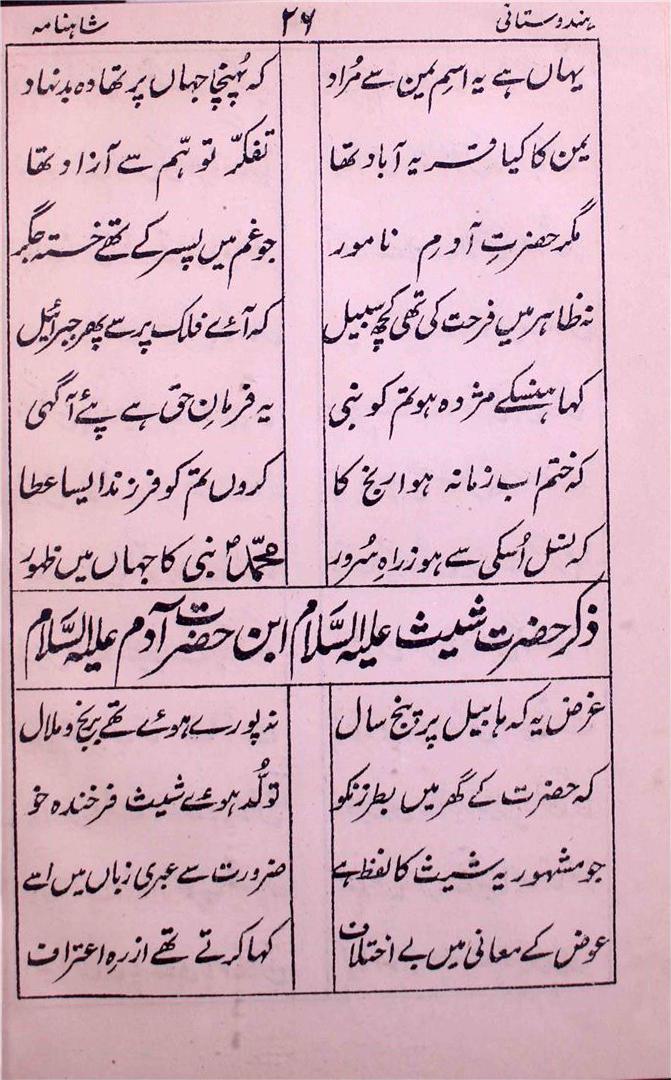 ہندوستانی ۲۶ شاہنامہ
یہاں ہے یہ اسمِ یمن سے مُراد کہ پُہنچا جہاں پر تھا وہ بدنہاد
یمن کا کیا قریہ آباد تھا تفکّر توہّم سے آزاد تھا
مگر حضرتِ آدمِ نامور جو غم میں پسر کے تھے خستہ جگر
نہ ظاہر میں فرحت کی تھی کچھ سبیل کہ آئے فلک پر سے پھر جبرائیل
کہا ہنسکے مژدہ ہو تم کو نبی یہ فرمانِ حق ہے پئے آگہی
کہ ختم اب زمانہ ہوا رنج کا کروں تم کو فرزند ایسا عطا
کہ نسل اُسکی سے ہو زراہِ سُرور محمّدؐ نبی کا جہاں میں ظہور
ذکر حضرت شیث علیہ السّلام ابن حضرت آدم علیہ السّلام
غرض یہ کہ ہابیل پر پنج سال نہ پورے ہوئے تھے برنج و ملال
کہ حضرت کے گھر میں بطرز نکو تولُّد ہوئے شیث فرخندہ خو
جو مشہور یہ شیث کا لفظ ہے ضرورت سے عبری زباں میں اسے
عوض کے معانی میں بے اختلاف کہا کرتے تھے از رہِ اعتراف